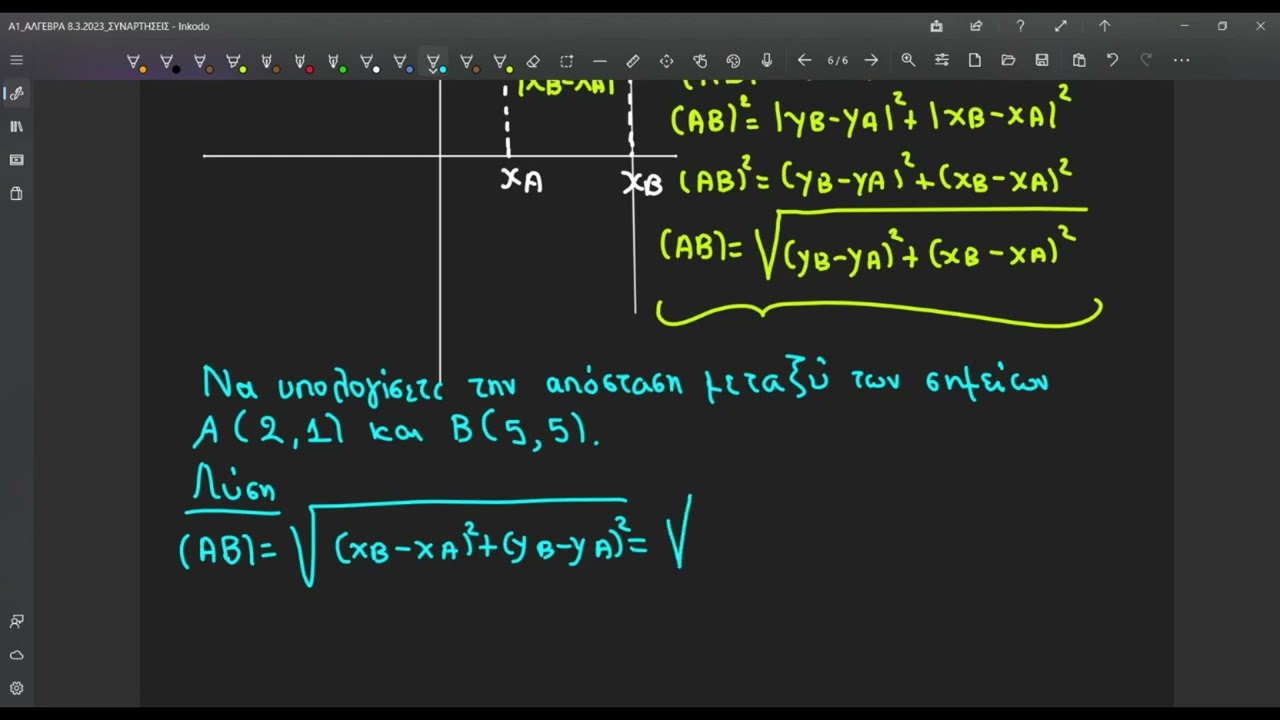 A1_ΑΛΓΕΒΡΑ 8.3.2023_ΣΥΝΑΡΤΗΣΕΙΣ - Inkodo
6/6
|xB-xA|
(AB)² = |yB-yA|² + |xB-xA|²
xA
xB
(AB)² = (yB-yA)² + (xB-xA)²
(AB) = √(yB-yA)² + (xB-xA)²
Να υπολογίσετε την απόσταση μεταξύ των σημείων
A(2,1) και B(5,5).
Λύση
(AB) = √(xB-xA)² + (yB-yA)² = √